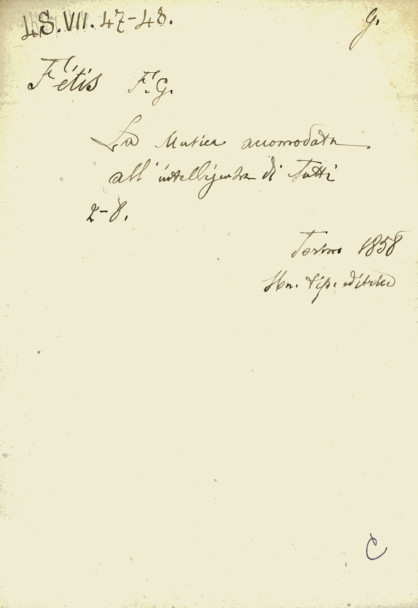 4.S.VII.47-48.
G.
Fétis F. G.
La Musica accomodata
all'intelligenza di Tutti
2-8.
Torino 1858
Un. Tip. editrice
C